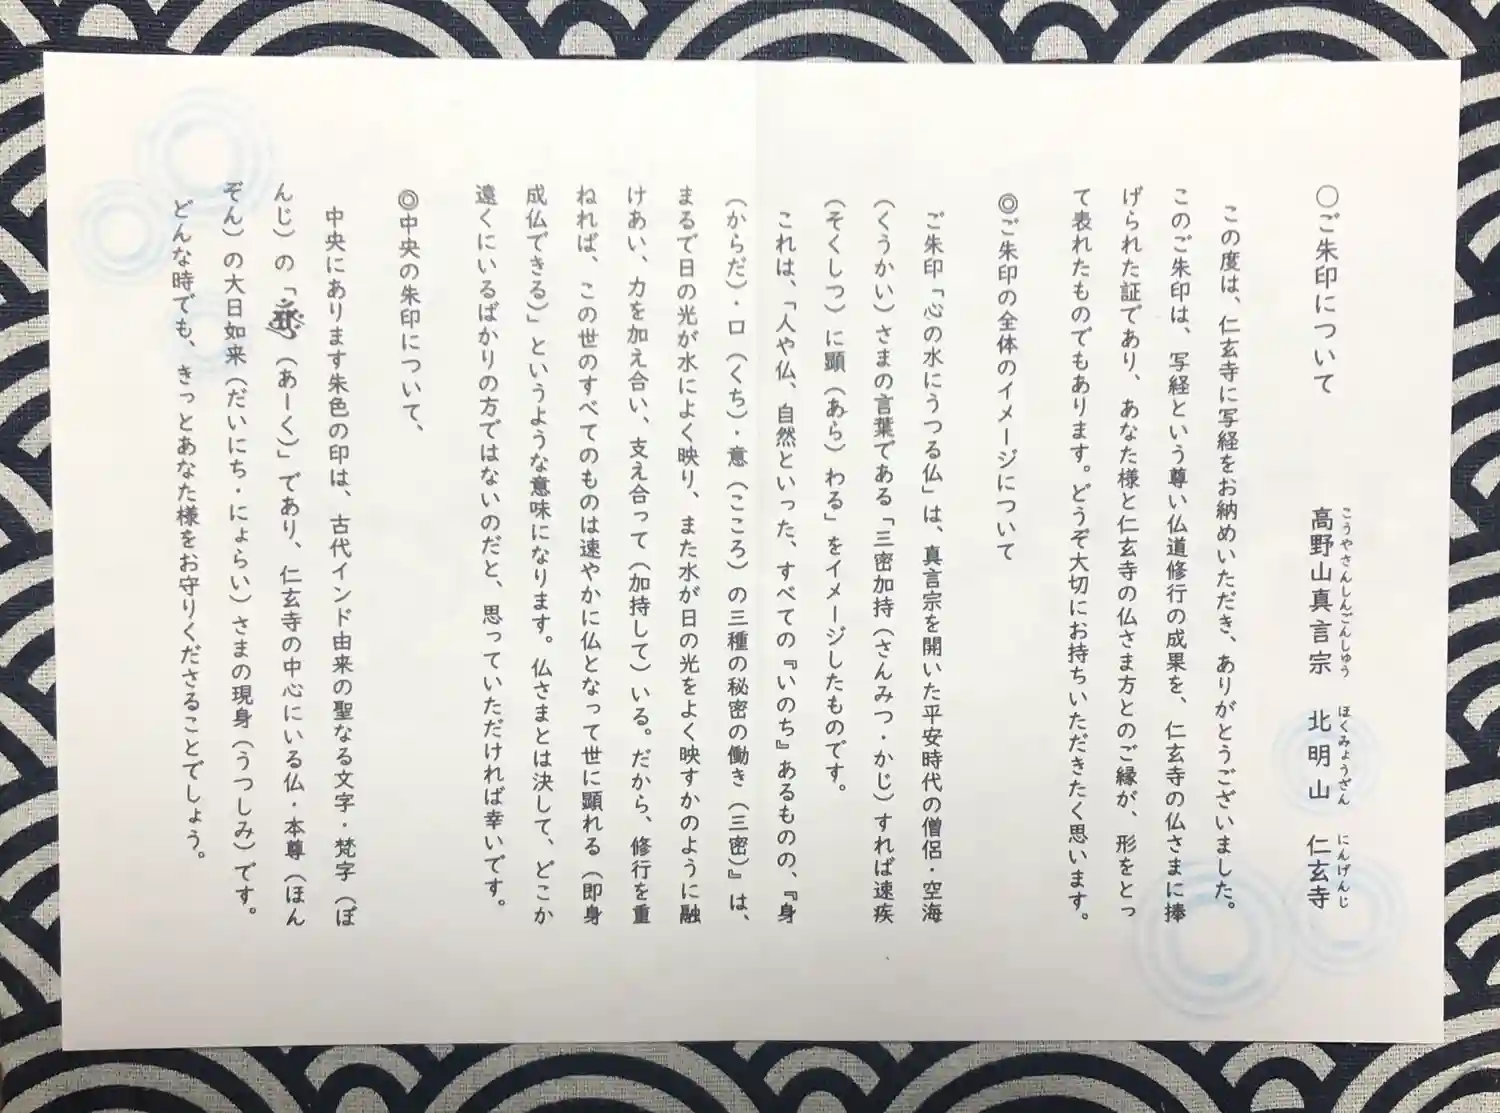 〇ご朱印について
高野山真言宗　北明山　仁玄寺
こうやさんしんごんしゅう　ほくみょうざん　にんげんじ
この度は、仁玄寺に写経をお納めいただき、ありがとうございました。
このご朱印は、写経という尊い仏道修行の成果を、仁玄寺の仏さまに捧
げられた証であり、あなた様と仁玄寺の仏さま方とのご縁が、形をとっ
て表れたものでもあります。どうぞ大切にお持ちいただきたく思います。
◎ご朱印の全体のイメージについて
ご朱印「心の水にうつる仏」は、真言宗を開いた平安時代の僧侶・空海
（くうかい）さまの言葉である「三密加持（さんみつ・かじ）すれば速疾
（そくしつ）に顕（あら）わる」をイメージしたものです。
これは、「人や仏、自然といった、すべての『いのち』あるものの、『身
（からだ）・口（くち）・意（こころ）の三種の秘密の働き（三密）』は、
まるで日の光が水によく映り、また水が日の光をよく映すかのように融
けあい、力を加え合い、支え合って（加持して）いる。だから、修行を重
ねれば、この世のすべてのものは速やかに仏となって世に顕れる（即身
成仏できる）」というような意味になります。仏さまとは決して、どこか
遠くにいるばかりの方ではないのだと、思っていただければ幸いです。
◎中央の朱印について、
中央にあります朱色の印は、古代インド由来の聖なる文字・梵字（ぼ
んじ）の「（あーく）」であり、仁玄寺の中心にいる仏・本尊（ほん
ぞん）の大日如来（だいにち・にょらい）さまの現身（うつしみ）です。
どんな時でも、きっとあなた様をお守りくださることでしょう。